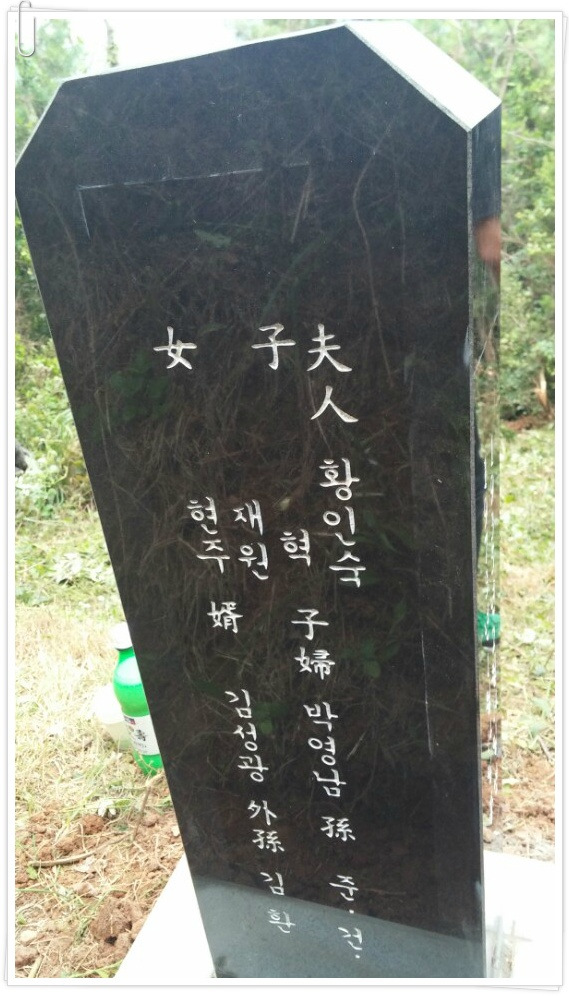 夫人 황인숙
子 혁 子婦 박영남 孫 준·건·
재원
女 현주 婿 김성광 外孫 김환